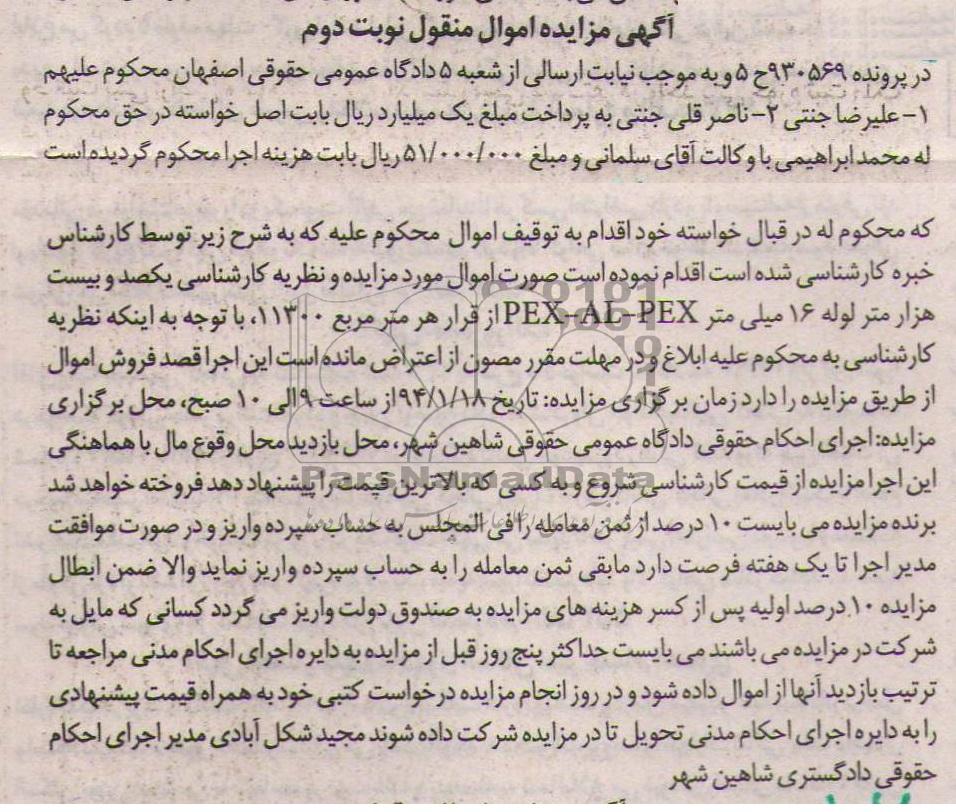 آگهی مزایده اموال منقول نوبت دوم
در پرونده ۹۳۰۵۶۹ح ۵ و به موجب نیابت ارسالی از شعبه ۵ دادگاه عمومی حقوقی اصفهان محکوم علیهم
۱- علیرضا جنتی ۲- ناصر قلی جنتی به پرداخت مبلغ یک میلیارد ریال بابت اصل خواسته در حق محکوم
له محمد ابراهیمی با وکالت آقای سلمانی و مبلغ ۵۱/۰۰۰/۰۰۰ ریال بابت هزینه اجرا محکوم گردیده است
که محکوم له در قبال خواسته خود اقدام به توقیف اموال محکوم علیه که به شرح زیر توسط کارشناس
خبره کارشناسی شده است اقدام نموده است صورت اموال مورد مزایده و نظریه کارشناسی یکصد و بیست
هزار متر لوله ۱۶ میلی متر PEX-AL-PEX از قرار هر متر مربع ۱۱۳۰۰، با توجه به اینکه نظریه
کارشناسی به محکوم علیه ابلاغ و در مهلت مقرر مصون از اعتراض مانده است این اجرا قصد فروش اموال
از طریق مزایده را دارد زمان برگزاری مزایده: تاریخ ۹۴/۱/۱۸ از ساعت ۹ الی ۱۰ صبح، محل برگزاری
مزایده: اجرای احکام حقوقی دادگاه عمومی حقوقی شاهین شهر، محل بازدید محل وقوع مال با هماهنگی
این اجرا مزایده از قیمت کارشناسی شروع و به کسی که بالاترین قیمت را پیشنهاد دهد فروخته خواهد شد
برنده مزایده می بایست ۱۰ درصد از ثمن معامله را فی المجلس به حساب سپرده واریز و در صورت موافقت
مدیر اجرا تا یک هفته فرصت دارد مابقی ثمن معامله را به حساب سپرده واریز نماید والا ضمن ابطال
مزایده ۱۰ درصد اولیه پس از کسر هزینه های مزایده به صندوق دولت واریز می گردد کسانی که مایل به
شرکت در مزایده می باشند می بایست حداکثر پنج روز قبل از مزایده به دایره اجرای احکام مدنی مراجعه تا
ترتیب بازدید آنها از اموال داده شود و در روز انجام مزایده درخواست کتبی خود به همراه قیمت پیشنهادی
را به دایره اجرای احکام مدنی تحویل تا در مزایده شرکت داده شوند مجید شکل آبادی مدیر اجرای احکام
حقوقی دادگستری شاهین شهر
ParsNamadData